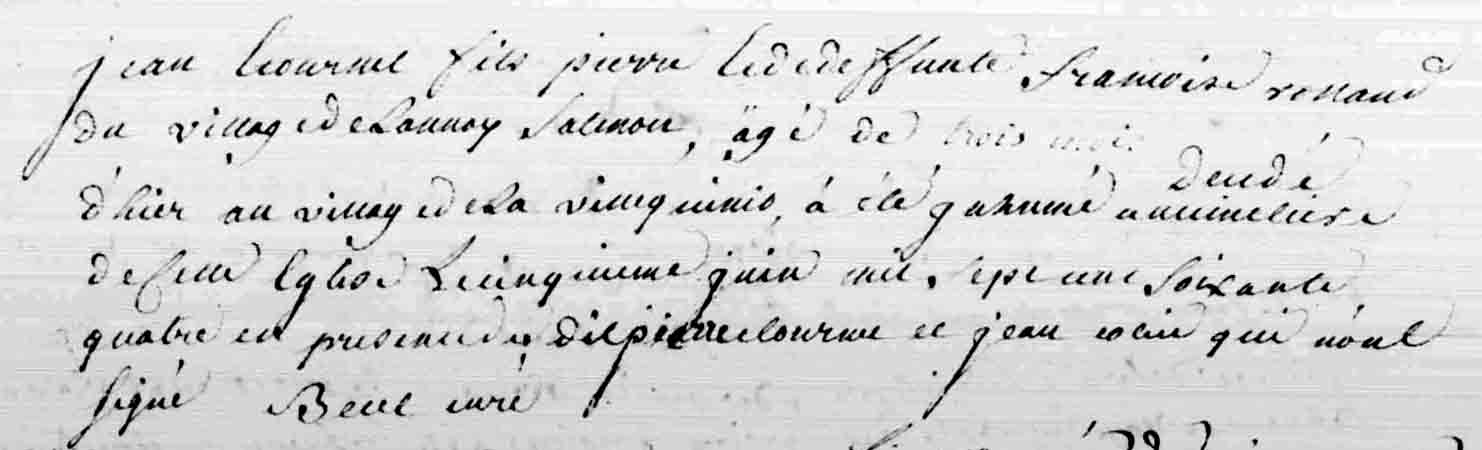 jean lournel fils pierre & de deffunte francoise rolland
du village de Launay Salmon, agé de trois mois
décédé
d'hier au village de la villeguinio, a été inhumé au cimetiere
de cette Eglise Le cinquieme juin mil sept cent soixante
quatre en presence des dit pierre lournel et jean qui n'ont
signé curé